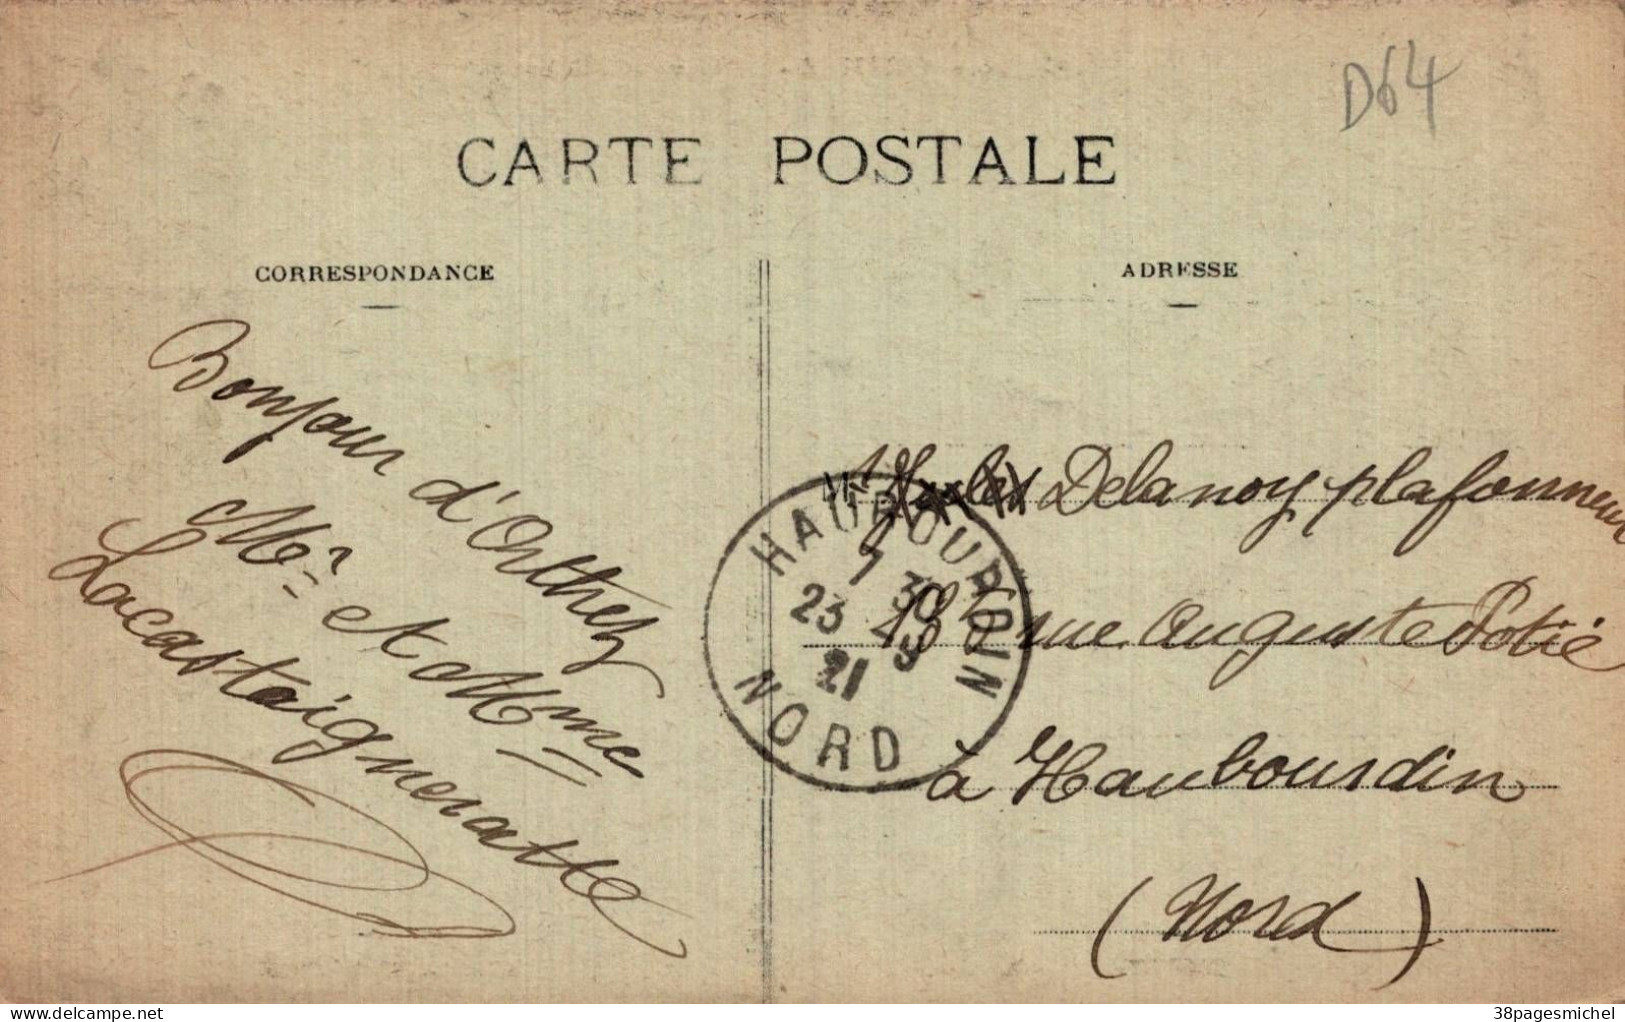 D64
CARTE POSTALE
CORRESPONDANCE
ADRESSE
Bonjour d'Orthez
Mr et Mme
Delanoy plafonneur
rue Auguste Potié
à Haubourdin
(Nord)
HAUBOURDIN
7 30
23 9
21
NORD
delcampe.net
38pagesmichel